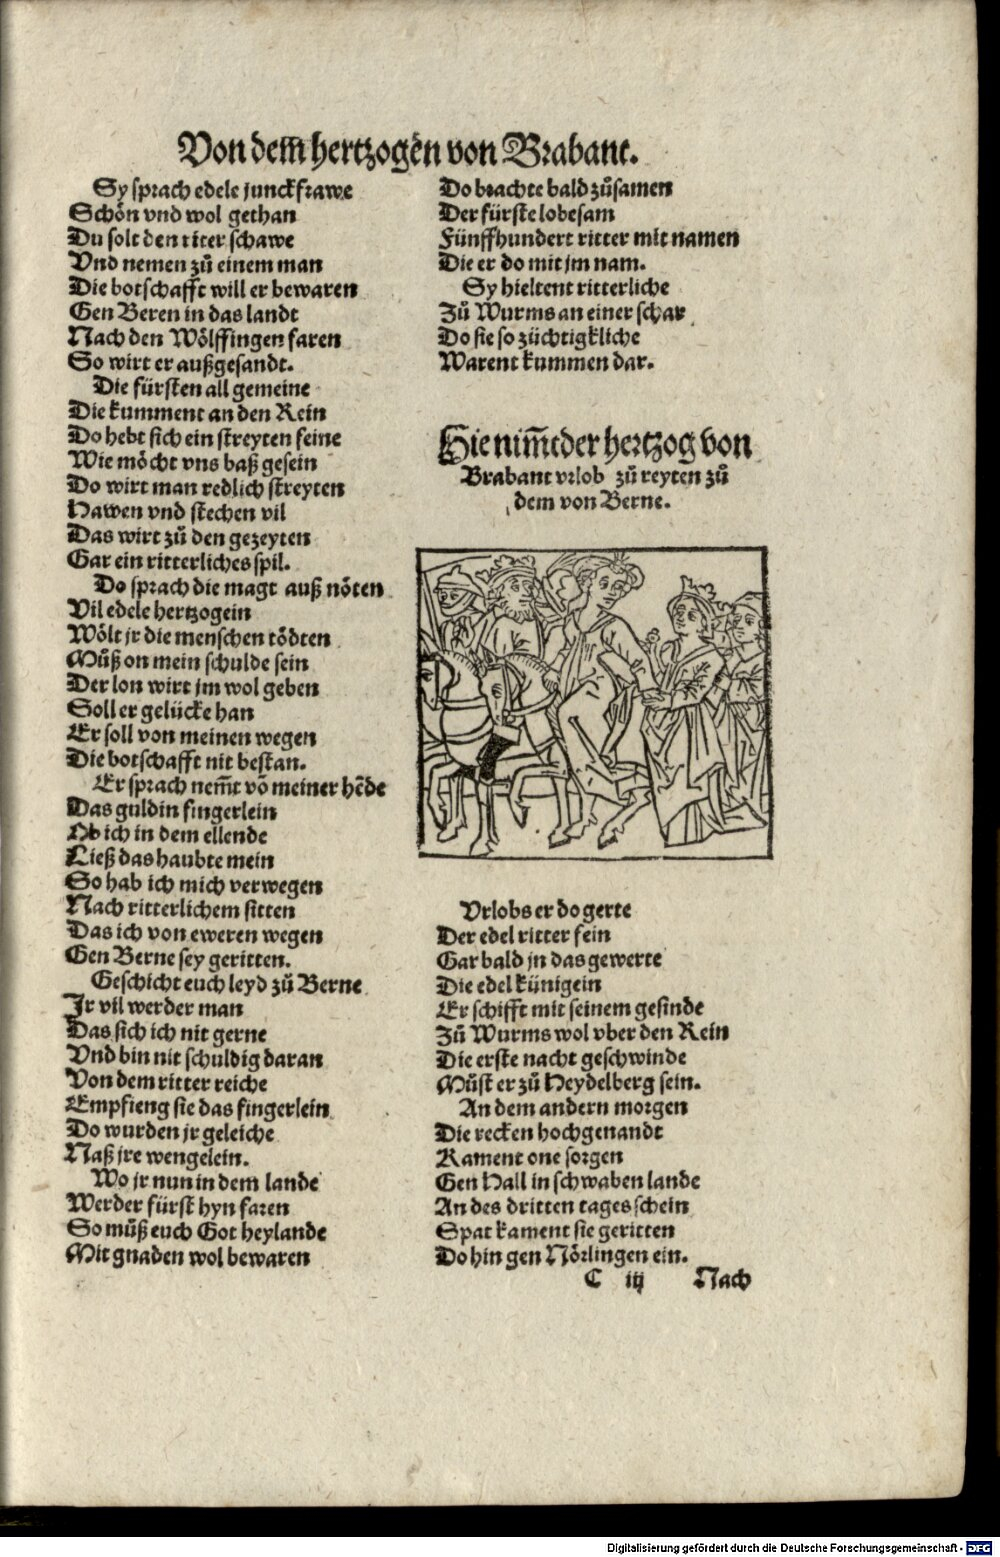 Von dem̃ hertzogẽn von Brabant.
Sy sprach edele junckfrawe
Schoͤn vnd wol gethan
Du solt den riter schawe
Vnd nemen zuͦ einem man
Die botschafft will er bewaren
Gen Beren in das landt
Nach den Woͤlffingen faren
So wirt er außgesandt.
Die fürsten all gemeine
Die kumment an den Rein
Do hebt sich ein streyten feine
Wie moͤcht vns baß gesein
Do wirt man redlich streyten
Hawen vnd stechen vil
Das wirt zuͦ den gezeyten
Gar ein ritterliches spil.
Do sprach die magt auß noͤten
Vil edele hertzogein
Woͤlt jr die menschen toͤdten
Muͦß on mein schulde sein
Der lon wirt jm wol geben
Soll er gelücke han
Er soll von meinen wegen
Die botschafft nit bestan.
Er sprach nem̃t võ meiner hẽde
Das guldin fingerlein
Ob ich in dem ellende
Ließ das haubte mein
So hab ich mich verwegen
Nach ritterlichem sitten
Das ich von eweren wegen
Gen Berne sey geritten.
Geschicht euch leyd zuͦ Berne
Jr vil werder man
Das sich ich nit gerne
Vnd bin nit schuldig daran
Von dem ritter reiche
Empfieng sie das fingerlein
Do wurden jr geleiche
Naß jre wengelein.
Wo jr nun in dem lande
Werder fürst hyn faren
So muͦß euch Got heylande
Mit gnaden wol bewaren
Do brachte bald zuͦsamen
Der fürste lobesam
Fünffhundert ritter mit namen
Die er do mit jm nam.
Sy hieltent ritterliche
Zuͦ Wurms an einer schar
Do sie so züchtigkliche
Warent kummen dar.
Hie nim̃t der hertzog von
Brabant vrlob zuͦ reyten zuͦ
dem von Berne.
Vrlobs er do gerte
Der edel ritter fein
Gar bald jn das gewerte
Die edel künigein
Er schifft mit seinem gesinde
Zuͦ Wurms wol vber den Rein
Die erste nacht geschwinde
Muͦst er zuͦ Heydelberg sein.
An dem andern morgen
Die recken hochgenandt
Kament one sorgen
Gen Hall in schwaben lande
An des dritten tages schein
Spat kament sie geritten
Do hin gen Noͤrlingen ein.
C iij Nach
Digitalisierung gefördert durch die Deutsche Forschungsgemeinschaft - DFG